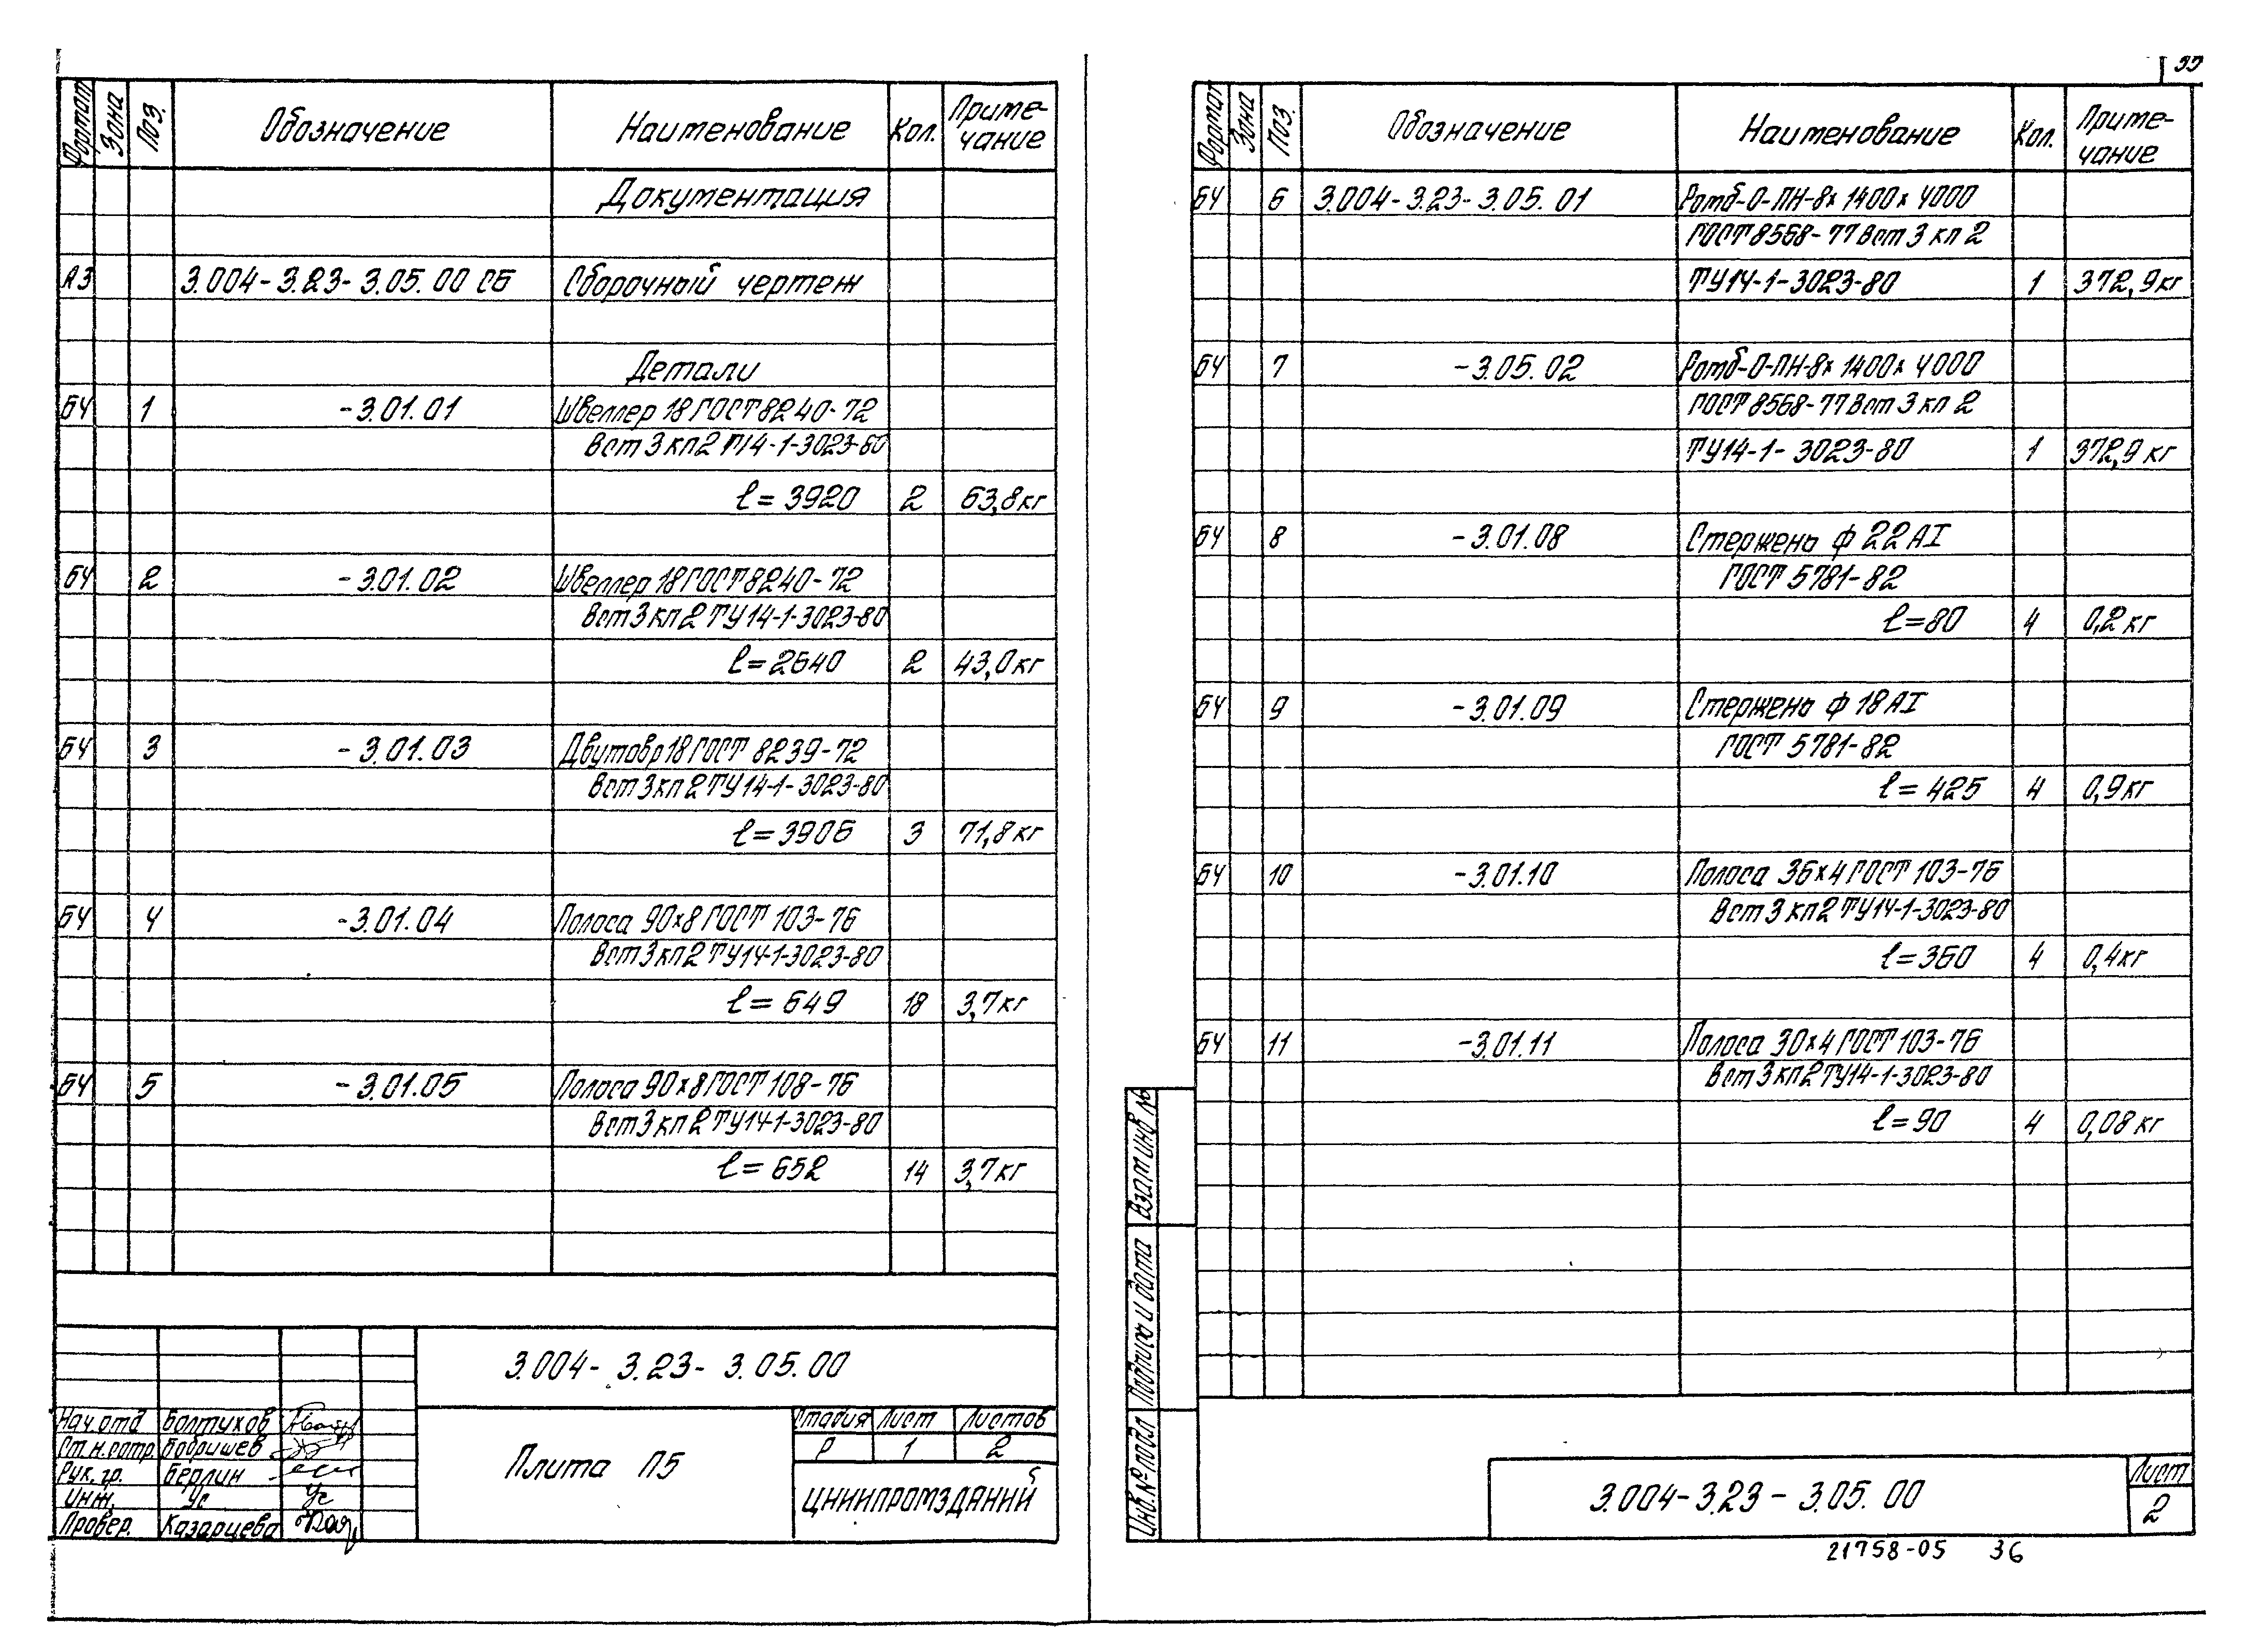 Формат Зона Поз. Обозначение Наименование Кол. Приме-чание
Документация
А3 3.004-3.23-3.05.00 СБ Сборочный чертеж
Детали
БЧ 1 -3.01.01 Швеллер 18 ГОСТ 8240-72
Вст 3 кп 2 Т14-1-3023-80
ℓ=3920 2 63,8 кг
БЧ 2 -3.01.02 Швеллер 18 ГОСТ 8240-72
Вст 3 кп 2 ТУ14-1-3023-80
ℓ=2640 2 43,0 кг
БЧ 3 -3.01.03 Двутавр 18 ГОСТ 8239-72
Вст 3 кп 2 ТУ14-1-3023-80
ℓ=3906 3 71,8 кг
БЧ 4 -3.01.04 Полоса 90х8 ГОСТ 103-76
Вст 3 кп 2 ТУ14-1-3023-80
ℓ=649 18 3,7 кг
БЧ 5 -3.01.05 Полоса 90х8 ГОСТ 108-76
Вст 3 кп 2 ТУ14-1-3023-80
ℓ=652 14 3,7 кг
3.004-3.23-3.05.00
Нач.отд Болтухов
Ст.н.сотр. Бобришев
Рук. гр. Берлин
Инж. Ус
Провер. Казарцева
Плита П5
Стадия Лист Листов
Р 1 2
ЦНИИПРОМЗДАНИЙ
Формат Зона Поз. Обозначение Наименование Кол. Приме-чание
БЧ 6 3.004-3.23-3.05.01 Ромб-О-ПН-8х1400х4000
ГОСТ 8568-77 Вст 3 кп 2
ТУ14-1-3023-80 1 372,9 кг
БЧ 7 -3.05.02 Ромб-О-ПН-8х1400х4000
ГОСТ 8568-77 Вст 3 кп 2
ТУ14-1-3023-80 1 372,9 кг
БЧ 8 -3.01.08 Стержень ф 22 АI
ГОСТ 5781-82
ℓ=80 4 0,2 кг
БЧ 9 -3.01.09 Стержень ф 18 АI
ГОСТ 5781-82
ℓ=425 4 0,9 кг
БЧ 10 -3.01.10 Полоса 36х4 ГОСТ 103-76
Вст 3 кп 2 ТУ14-1-3023-80
ℓ=360 4 0,4 кг
БЧ 11 -3.01.11 Полоса 30х4 ГОСТ 103-76
Вст 3 кп 2 ТУ14-1-3023-80
ℓ=90 4 0,08 кг
Взам инв №
Подпись и дата
Инв.№ подл
3.004-3.23-3.05.00
Лист
2
21758-05 36